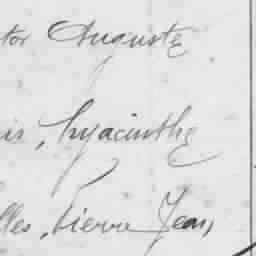 tor Auguste
is, hyacinthe
lles, Pierre Jean,